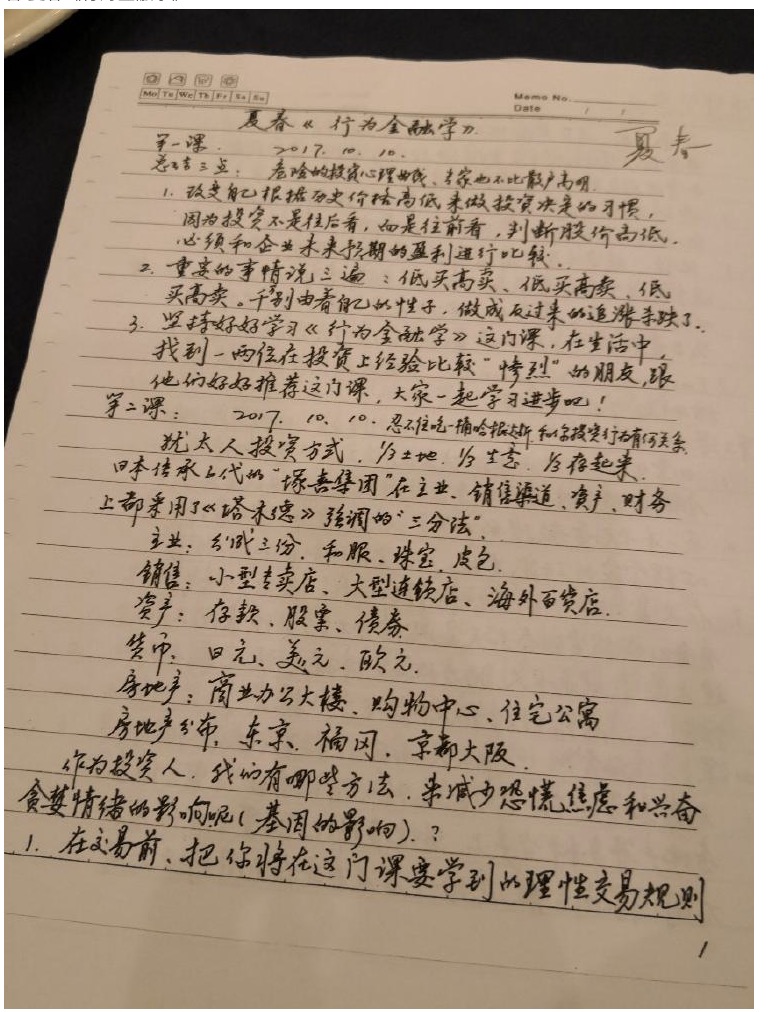 Mo Tu We Th Fr Sa Su
Memo No.
Date / /
夏春《行为金融学》
夏春
第一课. 2017. 10. 10.
总结三点: 危险的投资心理曲线、专家也不比散户高明.
1. 改变自己根据历史价格高低来做投资决定的习惯,
因为投资不是往后看,而是往前看,判断股价高低,
必须和企业未来预期的盈利进行比较.
2. 重要的事情说三遍: 低买高卖、低买高卖、低
买高卖。千万别由着自己的性子,做成反过来的追涨杀跌了.
3. 坚持好好学习《行为金融学》这门课,在生活中,
找到一两位在投资上经验比较“惨烈”的朋友,跟
他们好好推荐这门课,大家一起学习进步吧!
第二课: 2017. 10. 10. 忍不住吃一桶哈根达斯和你投资行为有何关系
犹太人投资方式. 1/3土地. 1/3生意. 1/3存起来.
日本传承上代的“塚喜集团”在主业、销售渠道、资产、财务
上都采用了《塔木德》强调的“三分法”.
主业: 分成三份. 和服、珠宝、皮包.
销售: 小型专卖店、大型连锁店、海外百货店.
资产: 存款、股票、债券
货币: 日元、美元、欧元.
房地产: 商业办公大楼、购物中心、住宅公寓
房地产分布. 东京. 福冈. 京都大阪.
作为投资人. 我们有哪些方法. 来减少恐慌焦虑和兴奋
贪婪情绪的影响呢(基因的影响).?
1. 在交易前、把你将在这门课要学到的理性交易规则
1